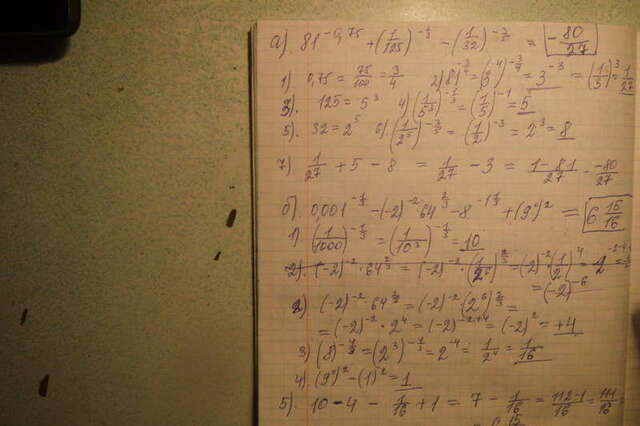 а). 81^(-0,75) + (1/125)^(-1/3) - (1/32)^(-3/5) = -80/27
1) 0,75 = 75/100 = 3/4 2) 81^(-3/4) = (3^4)^(-3/4) = 3^(-3) = (1/3)^3 = 1/27
3). 125 = 5^3 4) (1/5^3)^(-1/3) = (1/5)^(-1) = 5
5). 32 = 2^5 6). (1/2^5)^(-3/5) = (1/2)^(-3) = 2^3 = 8
7) 1/27 + 5 - 8 = 1/27 - 3 = 1-81/27 = -80/27
б). 0,001^(-1/3) - (-2)^(-2) 64^(2/3) - 8^(-1 1/3) + (9°)^2 = 6 15/16
1). (1/1000)^(-1/3) = (1/10^3)^(-1/3) = 10
2). (-2)^(-2) · 64^(2/3) = (-2)^(-2) ·
= (-2)^(-6)
2) (-2)^(-2) · 64^(2/3) = (-2)^(-2) · (2^6)^(2/3) =
= (-2)^(-2) · 2^4 = (-2)^(-2+4) = (-2)^2 = +4
3) (8)^(-4/3) = (2^3)^(-4/3) = 2^(-4) = 1/2^4 = 1/16
4) (9°)^2 - (1)^2 = 1
5). 10 - 4 - 1/16 + 1 = 7 - 1/16 = 112-1/16 = 111/16 =
15